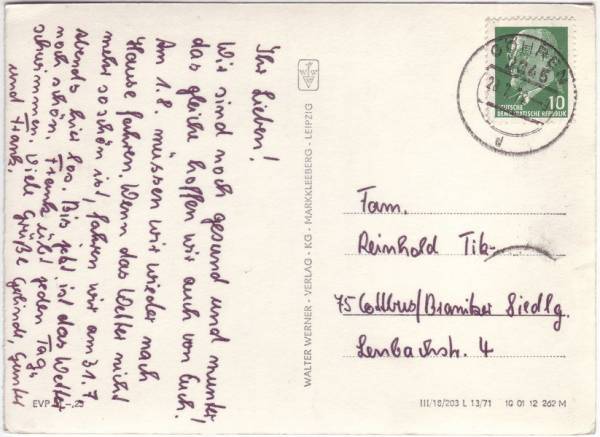 Ihr Lieben!
Wir sind noch gesund und munter,
das gleiche hoffen wir auch von Euch!
Am 1.8. müssen wir wieder nach
Hause fahren. Wenn das Wetter nicht
mehr so schön ist, fahren wir am 31.7.
abends hier los. Bis jetzt ist das Wetter
noch schön. Frank übt jeden Tag
schwimmen. Viele Grüße Gerlinde, Günter
und Frank.
EVP
WALTER WERNER - VERLAG - KG - MARKKLEEBERG - LEIPZIG
GÖHREN
2345
10
DEUTSCHE
DEMOKRATISCHE REPUBLIK
d
Fam.
Reinhold Tik-
75 Cottbus/Branitzer Siedlg.
Lenbachstr. 4
III/18/203 L 13/71 10 01 12 262 M